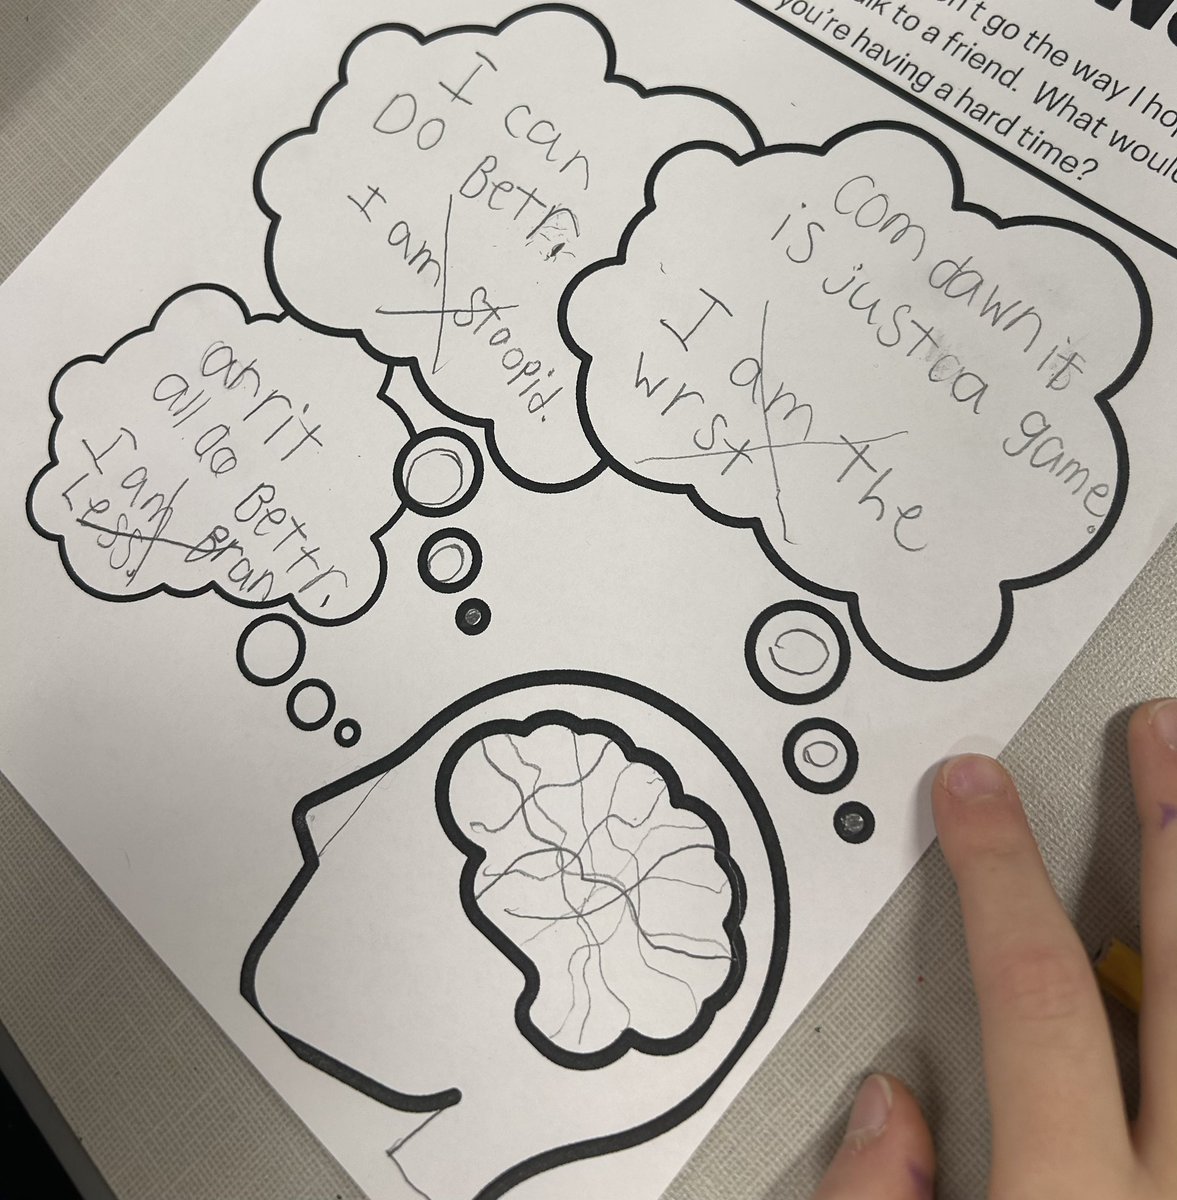 n't go the way I hop
lk to a friend. What would
you're having a hard time?
I can
Do Betr
I am
stoopid.
com dawn it
is just a game.
I am the
wrst
an rit
all do Bettr.
I am Bran
Less.